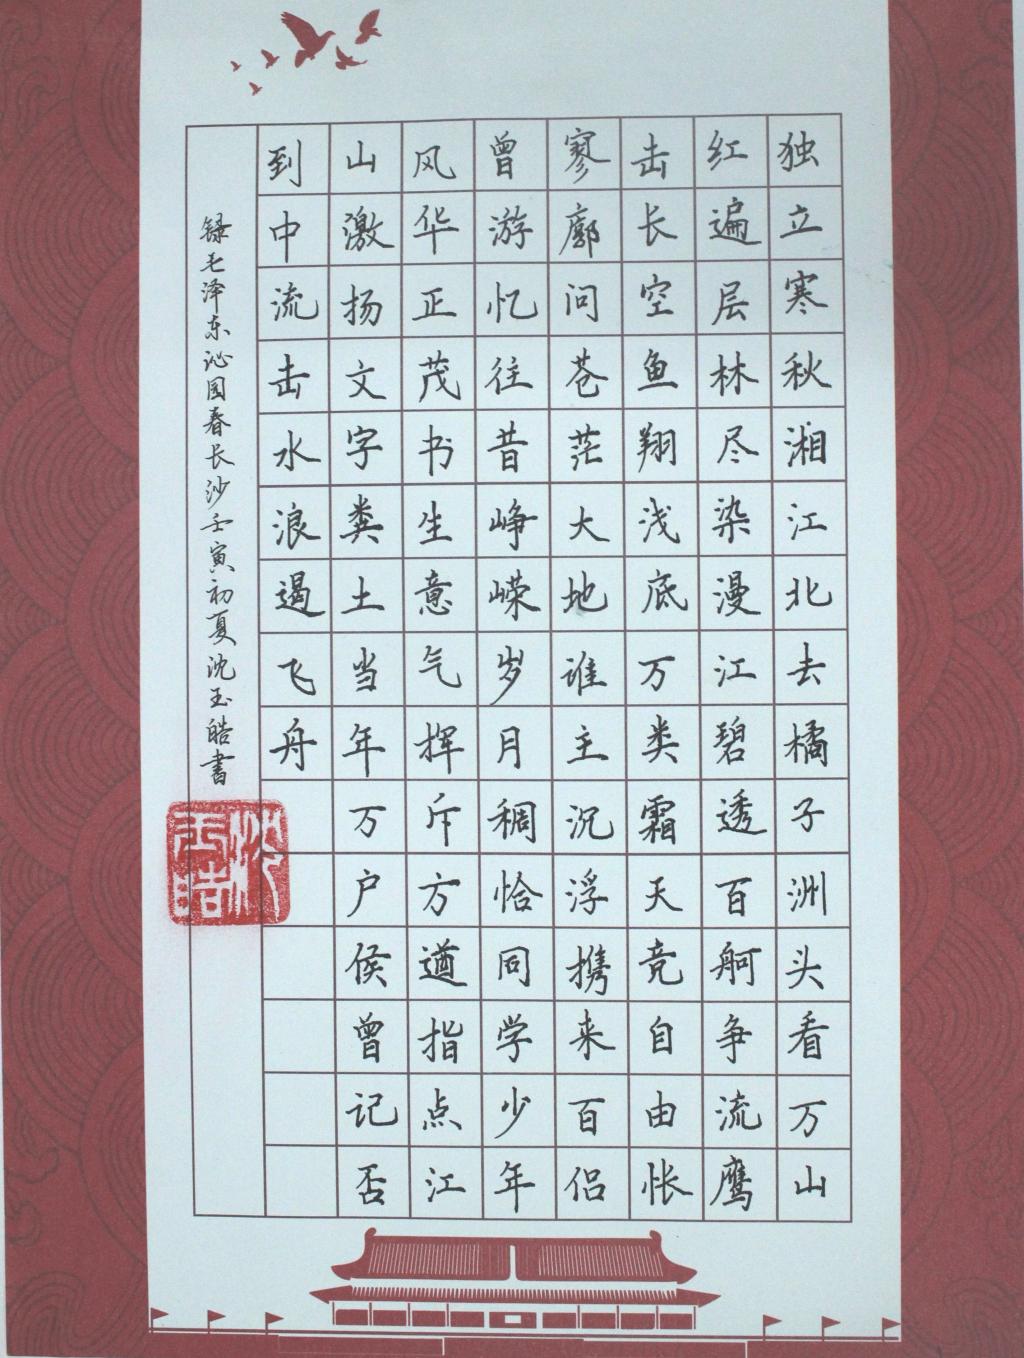 独立寒秋湘江北去橘子洲头看万山
红遍层林尽染漫江碧透百舸争流鹰
击长空鱼翔浅底万类霜天竞自由怅
寥廓问苍茫大地谁主沉浮携来百侣
曾游忆往昔峥嵘岁月稠恰同学少年
风华正茂书生意气挥斥方遒指点江
山激扬文字粪土当年万户侯曾记否
到中流击水浪遏飞舟
录毛泽东沁园春长沙壬寅初夏沈玉皓书
沈玉皓